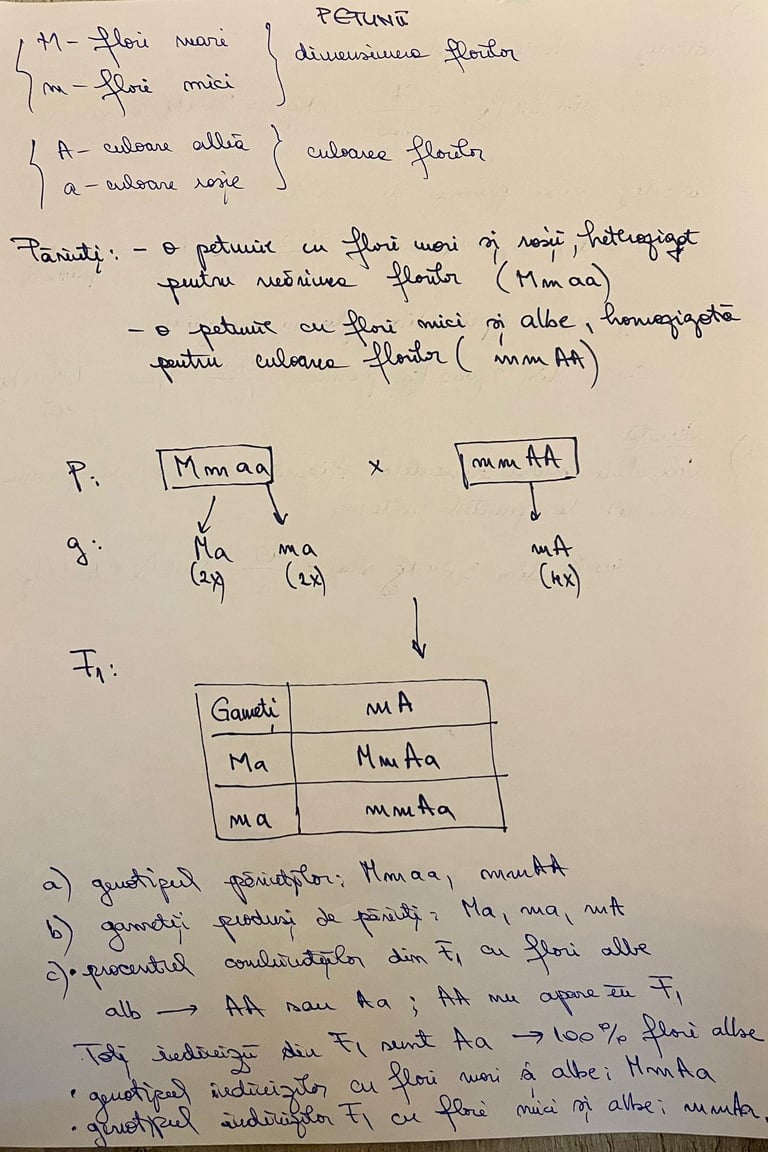 PETUNII
M - flori mari } dimensiunea florilor
m - flori mici
A - culoare albă } culoarea florilor
a - culoare roșie
Părinți: - o petunie cu flori mari și roșii, heterozigot
pentru mărimea florilor (Mmaa)
- o petunie cu flori mici și albe, homozigotă
pentru culoarea florilor (mmAA)
P: Mmaa x mmAA
g: Ma ma mA
(2x) (2x) (4x)
F1:
Gameți mA
Ma MmAa
ma mmAa
a) genotipul părinților: Mmaa, mmAA
b) gameții produși de părinți: Ma, ma, mA
c) • procentul combinațiilor din F1 cu flori albe
alb → AA sau Aa ; AA nu apare în F1
Toți indivizii din F1 sunt Aa → 100% flori albe
• genotipul indivizilor cu flori mari și albe: MmAa
• genotipul indivizilor F1 cu flori mici și albe: mmAa.